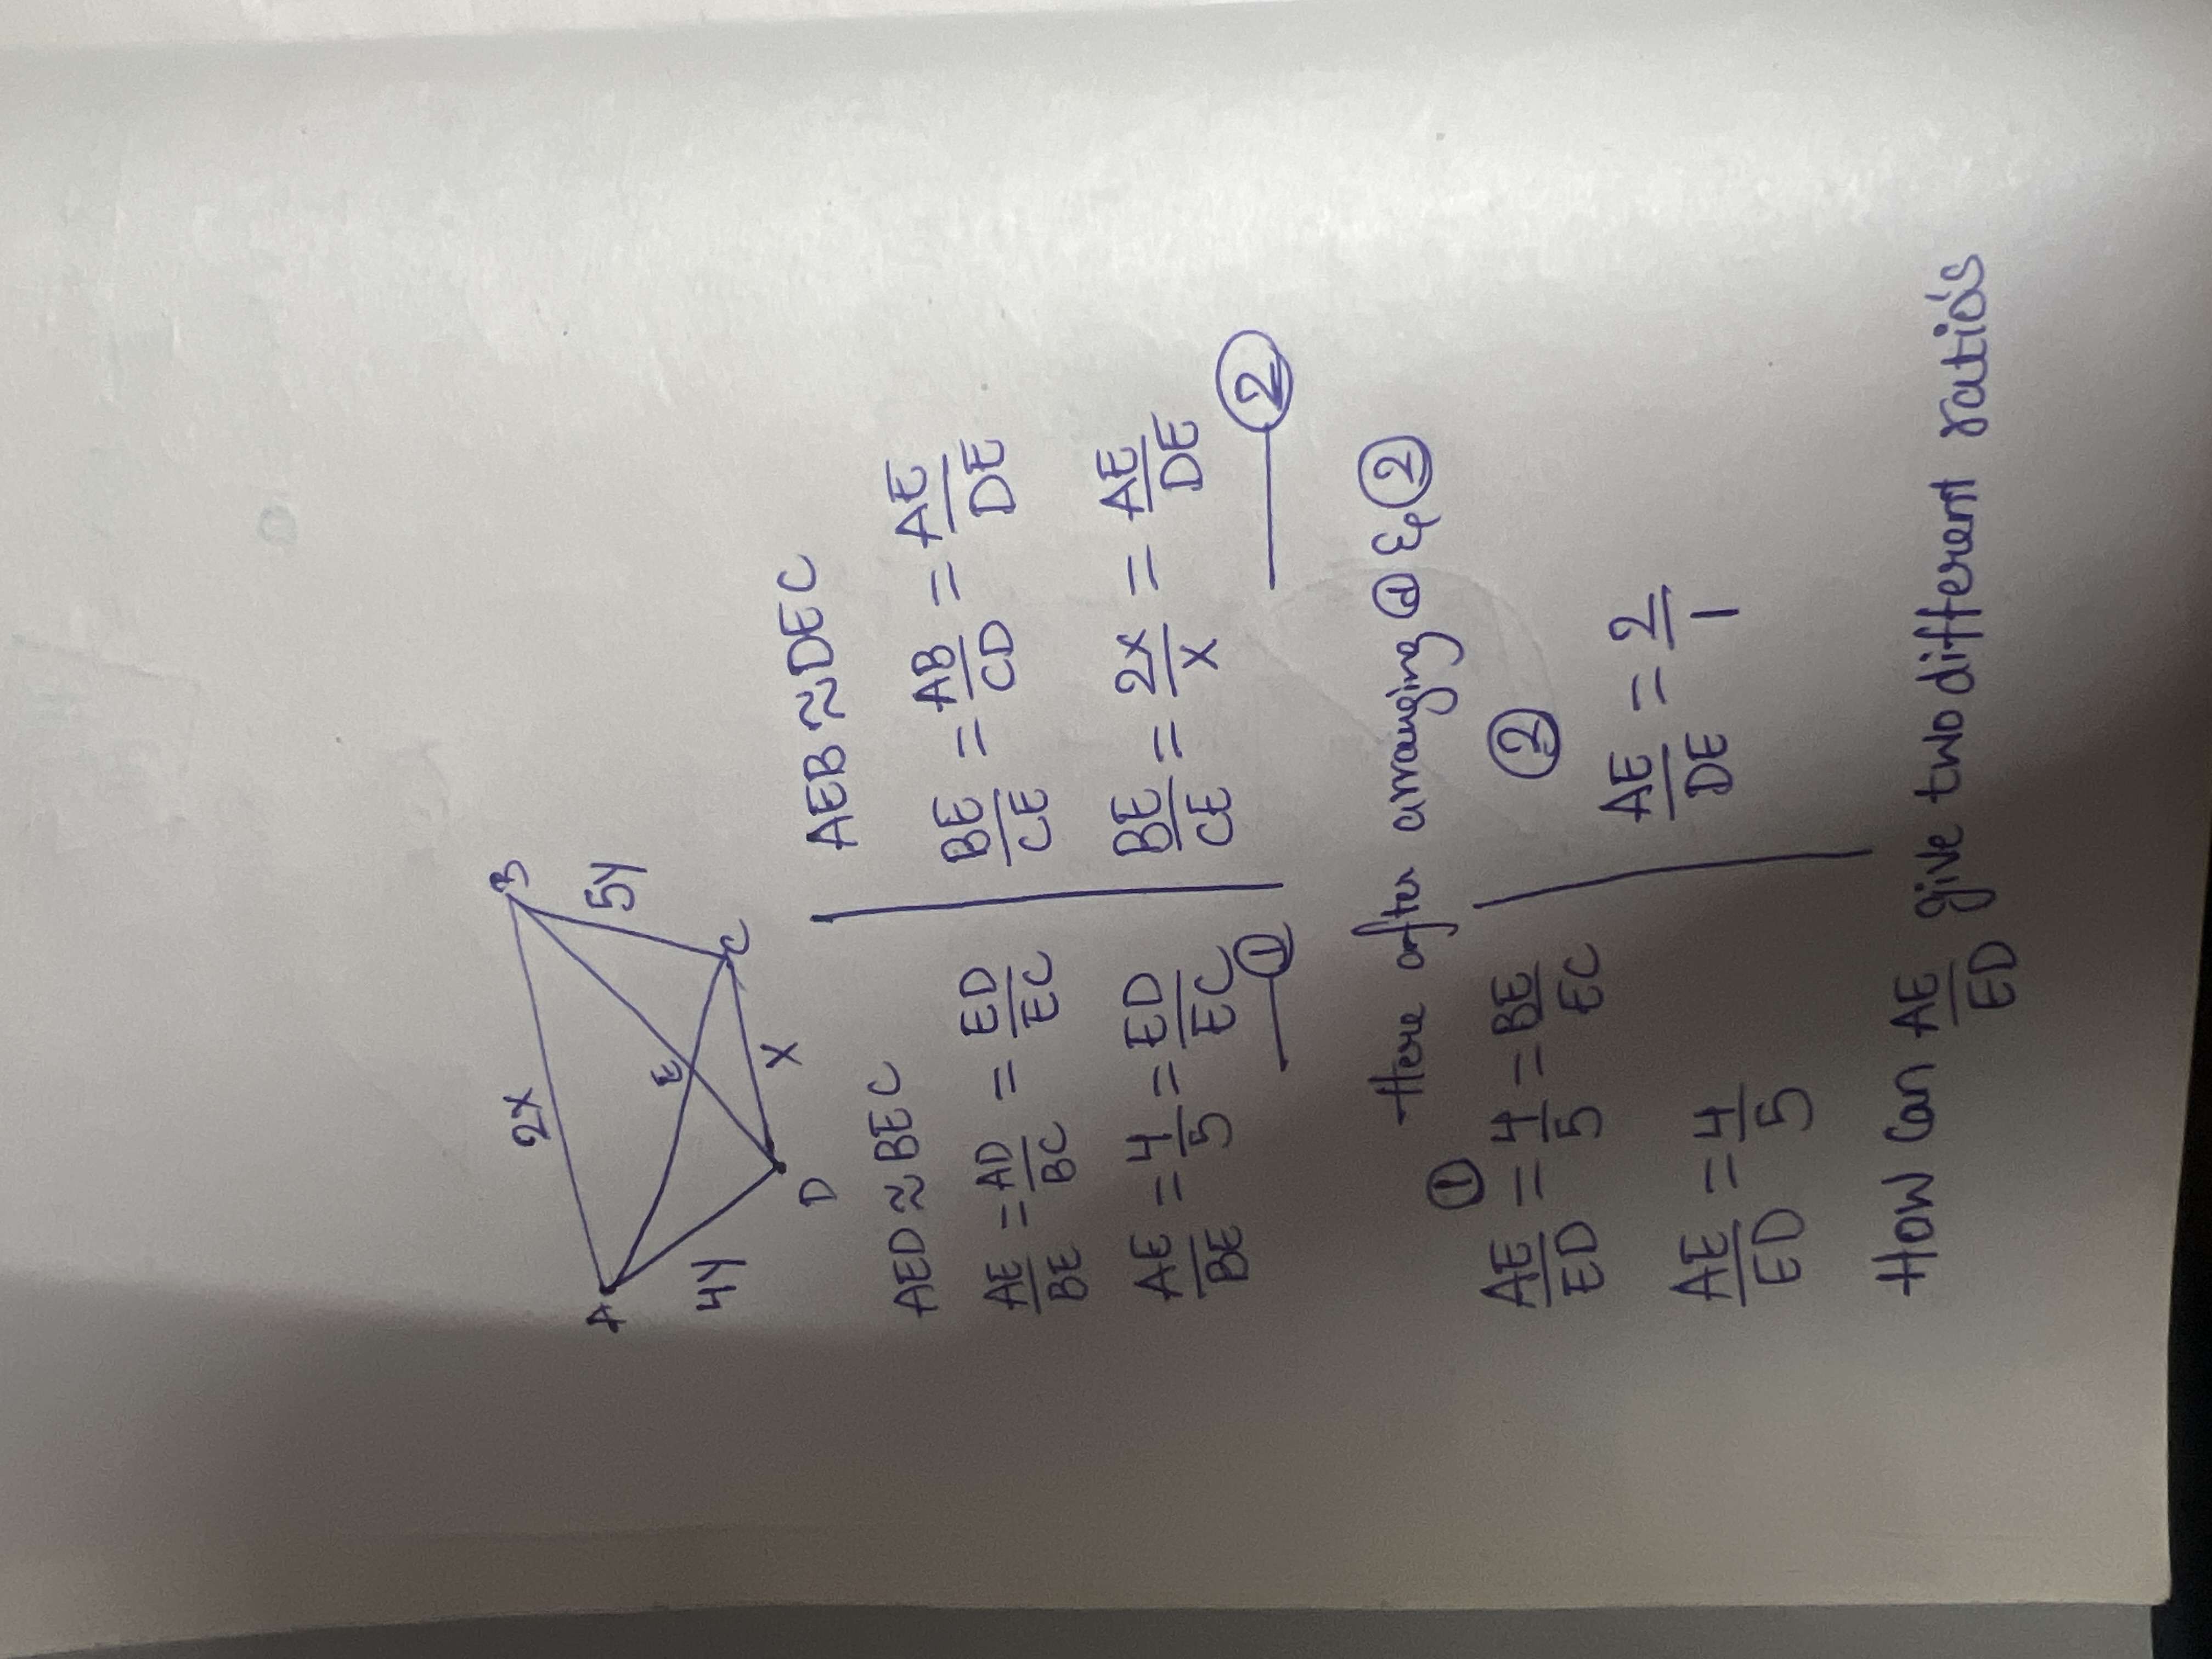 B
2x
5y
A
E
C
4y
x
D
AED ≈ BEC
AE/BE = AD/BC = ED/EC
AE/BE = 4/5 = ED/EC
①
AEB ≈ DEC
BE/CE = AB/CD = AE/DE
BE/CE = 2x/x = AE/DE
②
Here after arranging ① & ②
①
AE/ED = 4/5 = BE/EC
AE/ED = 4/5
②
AE/DE = 2/1
How Can AE/ED give two different ratio's